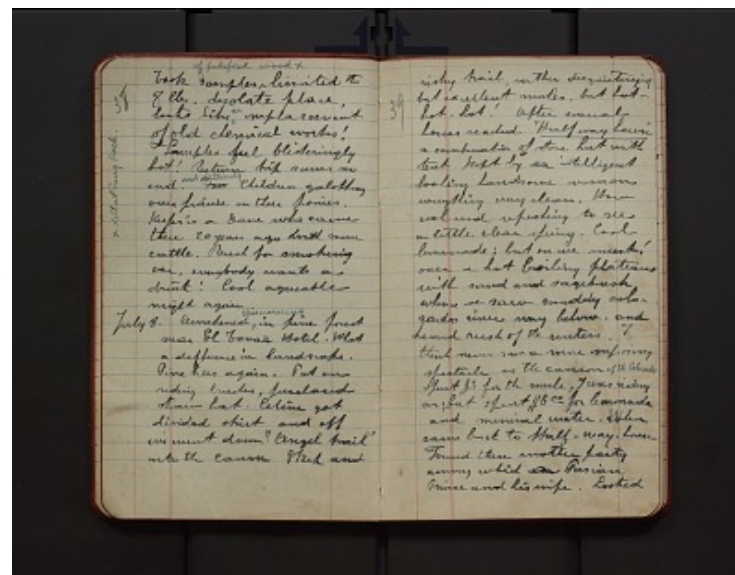 of petrified wood x
Took samples, limited to
8 lbs. desolate place,
looks like emplacement
of old chemical works!
Samples feel blisteringly
hot! Return trip same as
and Children galloping
over prairie on their ponies.
Keeper is a Dane who came
there 20 years ago with some
cattle. Rush for smoking
car, everybody wants a
drink! Cool agreeable
night again
July 8. Awakened, in pine forest
near El Tovar Hotel. What
a difference in landscape.
Pine trees again. Put on
riding breeches, purchased
straw hat. Celine got
divided skirt and off
we went down "Angel trail"
into the canon Steep and
39
risky trail, rather disquieting
but excellent mules, but hot-
hot-hot! After several
hours reached "Half way house"
a combination of store hut with
tent kept by an intelligent
looking handsome woman
everything very clean. How
cool and refreshing to see
a little clear spring. Cool
lemonade; but on we march!
over a hot broiling plateau
with sand and sagebrush
where we saw muddy Colo-
rado river way below, and
heard rush of the waters. I
think never saw a more inspiring
spectacle as the canon of the Colorado
Spent $3 for the mule, I was riding
on, but spent for lemonade
and mineral water. When
came back to Half-way-house
Found there another party
among which Russian
Prince and his wife. Looked